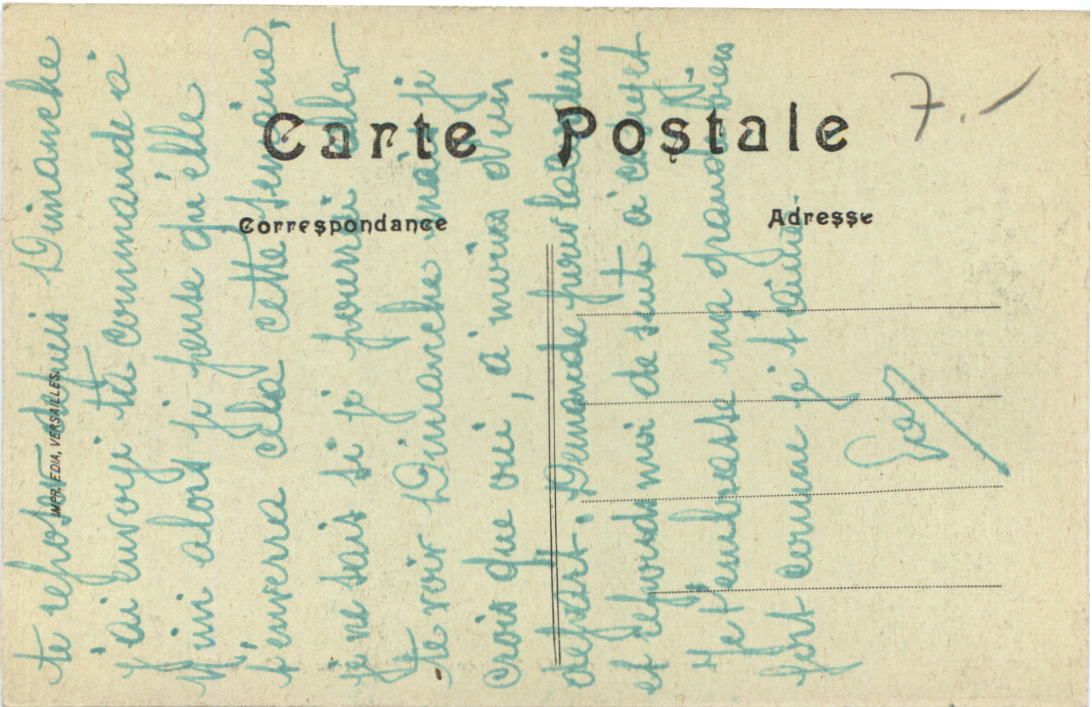 Carte Postale
7.-
Correspondance
Adresse
IMPR. EDIA, VERSAILLES.
te reposer depuis Dimanche
j'ai envoyé ta commande à
Mimi alors je pense qu'elle
t'enverra cela cette semaine,
je ne sais si je pourrai aller
te voir Dimanche mais je
crois que oui, à moins d'un
départ. Demande pour la
et réponds moi de suite à ce sujet
Je t'embrasse ma grande bien
fort comme je t'aime